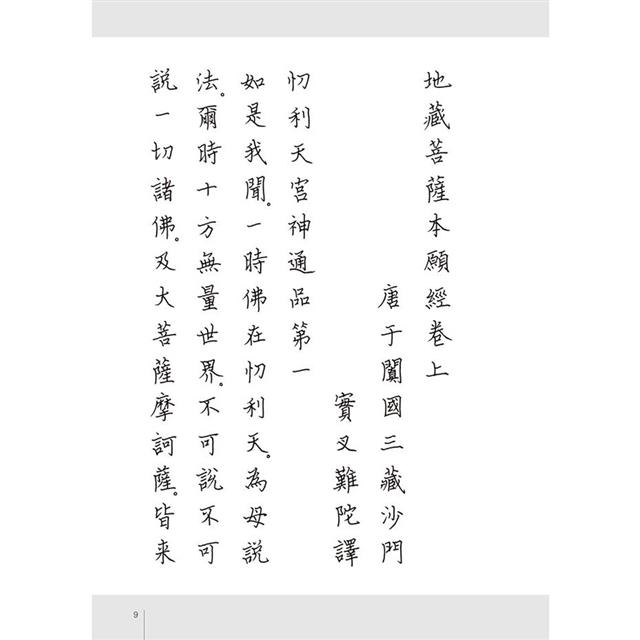 地藏菩薩本願經卷上
唐于闐國三藏沙門
實叉難陀譯
忉利天宮神通品第一
如是我聞。一時佛在忉利天。為母說
法。爾時十方無量世界。不可說不可
說一切諸佛。及大菩薩摩訶薩。皆來
9